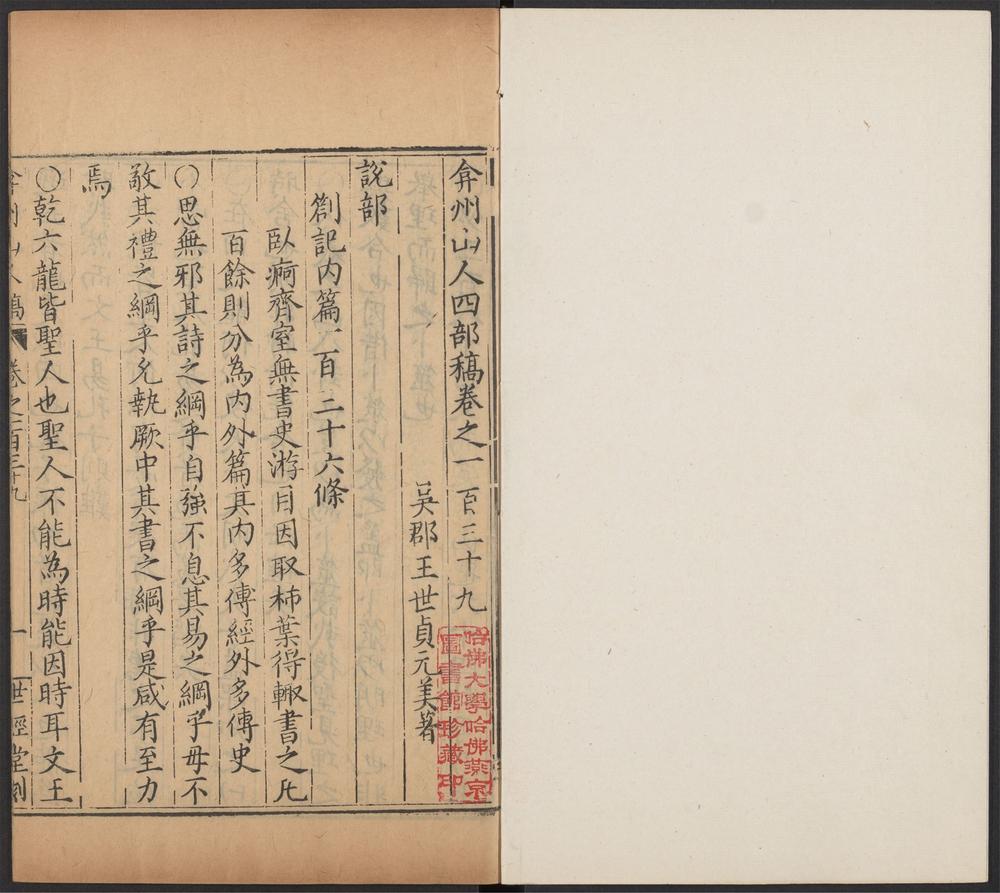 弇州山人四部稿卷之一百三十九
吳郡王世貞元美著
說部
劄記内篇一百三十六條
臥痾齊室無書史游目因取柿葉得輙書之凡
百餘則分為内外篇其内多傳經外多傳史
○思無邪其詩之綱乎自強不息其易之綱乎毋不
敬其禮之綱乎允執厥中其書之綱乎是咸有至力
焉
○乾六龍皆聖人也聖人不能為時能因時耳文王
弇州山人稿
卷之一百三十九
一
世經堂刻
哈佛大學哈佛燕京
圖書館珍藏印